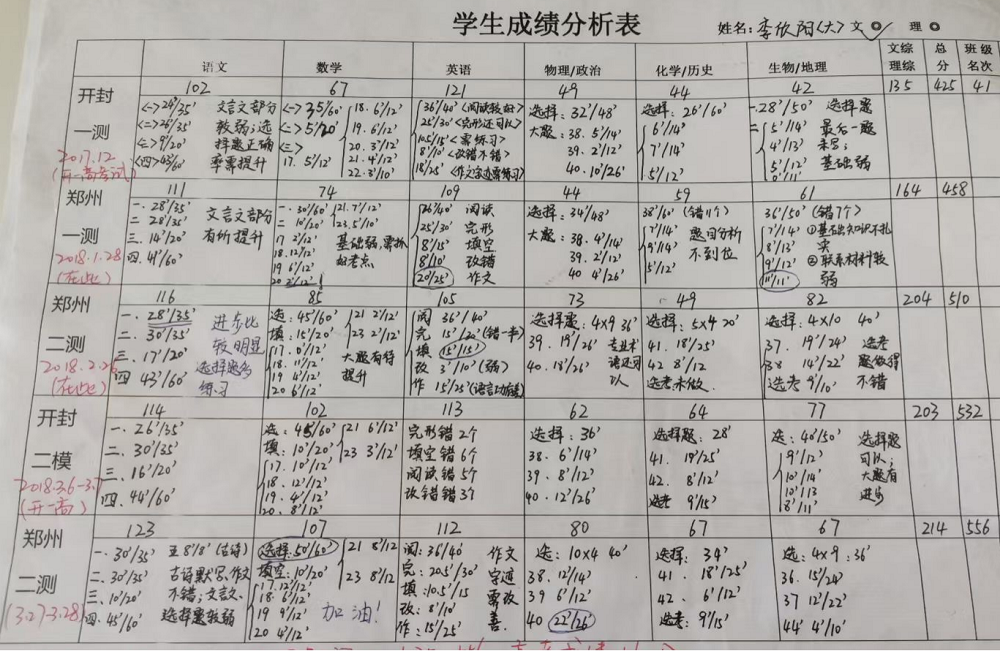 学生成绩分析表
姓名: 李欣阳(大) 文 理
语文 数学 英语 物理/政治 化学/历史 生物/地理 文综理综 总分 班级名次
开封一测
2017.12
102 67 121 49 44 42 135 425 41
<一>24'/35' 文言文部分
<二>26'/35' 较弱;选
<三>9'/20' 择题正确
<四>43'/60' 率需提升
<一>35/60'
<二>5'/20'
<三>
17. 5'/12'
18. 6'/12'
19. 6'/12'
20. 3'/12'
21. 4'/12'
22. 3'/10'
36'/40'
25'/30' <完形还可以>
10.5/15' <需练习>
8'/10' <改错不错>
18'/25' <作文字迹需练习>
选择: 32'/48'
大题: 38. 5'/14'
39. 2'/12'
40. 10'/26'
选择: 26'/60'
6'/14'
7'/14'
5'/12'
一. 28'/50' 选择题
二 5'/14' 最后一题
4'/13' 未写;
5'/12' 基础弱
0'/11'
郑州一测
2018.1.28
(在此)
111 74 109 44 59 61 164 458
一. 28'/35' 文言文部分
二 28'/35' 有所提升
三. 14'/20'
四. 41'/60'
一. 30'/60' 21. 7'/12'
二. 10'/20' 23. 5'/10'
17 2'/12' 基础弱,需抓
18. 12'/12' 的考点
19 6'/12'
20 2'/12'
26'/40' 阅读
25'/30' 完形
8'/15' 填空
8'/10' 改错
20'/25' 作文
选择: 34'/48'
大题: 38. 4'/14'
39. 2'/12'
40 4'/26'
38'/60' (错11个)
7'/14' 题目分析
9'/14' 不到位
5'/12'
36'/50' (错7个)
7'/14' ①基础知识不扎
8'/13' 实
9'/12' ②联系材料较
11'/11' 弱
郑州二测
2018.2.26
(在此)
116 85 105 73 49 82 204 510
一. 28'/35' 进步比
二. 30'/35' 较明显
三. 17'/20' 选择题多
四 43'/60' 练习
选: 45'/60' 21 2'/12'
填: 15'/20' 23 2'/12'
17. 0'/12' 大题有待
18. 11'/12' 提升
19 4'/12'
20 6'/12'
阅 36'/40'
完 15'/30' (错一半)
填 15'/15'
改 3'/10' (弱)
作 15'/25'
选择题: 4×9 36'
39. 19'/26' 专业术
40. 18'/26' 语还可以
选择: 5×4 20'
41. 18'/25'
42 8'/12
选考未做.
选择: 4×10 40'
37. 19'/24' 选考
38 14'/22' 题做得
选考 9'/10' 不错
开封二模
2018.3.6-3.7
(开一高)
114 102 113 62 64 77 203 532
一. 26'/35'
二. 30'/35'
三. 16'/20'
四. 44'/60'
选: 45'/60' 21 6'/12'
填: 10'/20' 23 3'/12'
17. 10'/12'
18. 12'/12'
19. 4'/12'
20. 8'/12'
完形错2个
填空错6个
阅读错5个
改错错3个
选择: 36'
38. 6'/14'
39. 8'/12'
40. 12'/26'
选择题: 28'
41. 19'/25'
42. 8'/12'
选考 9'/15'
选: 40'/50' 选择题
9'/12' 可以;
10'/14' 大题有
10'/13 进步
8'/11'
郑州二测
(3.27-3.28)
123 107 112 80 67 67 214 556
一. 30'/35' 五 8'/8' (古诗)
二. 30'/35' 古诗默写、作文
三. 10'/20' 不错;文言文、
四. 45'/60' 选择题较弱
选择: 50'/60' 21 8'/12
填空: 10'/20' 23 8'/12
17 12'/12'
18. 6'/12'
19 9'/12'
20 4'/12'
加油!
阅: 36/40' 作文
完: 20.5'/30' 字迹
填: 10.5'/15 需改
改: 8'/10' 善.
作: 15'/25'
选: 10×4 40'
38. 12'/14'
39 6'/12'
40 22'/26'
选择: 34'
41. 18'/25'
42. 6'/12'
选考: 9'/15'
选: 4×9: 36'
36. 15'/24'
37 12'/22'
44' 4'/10'